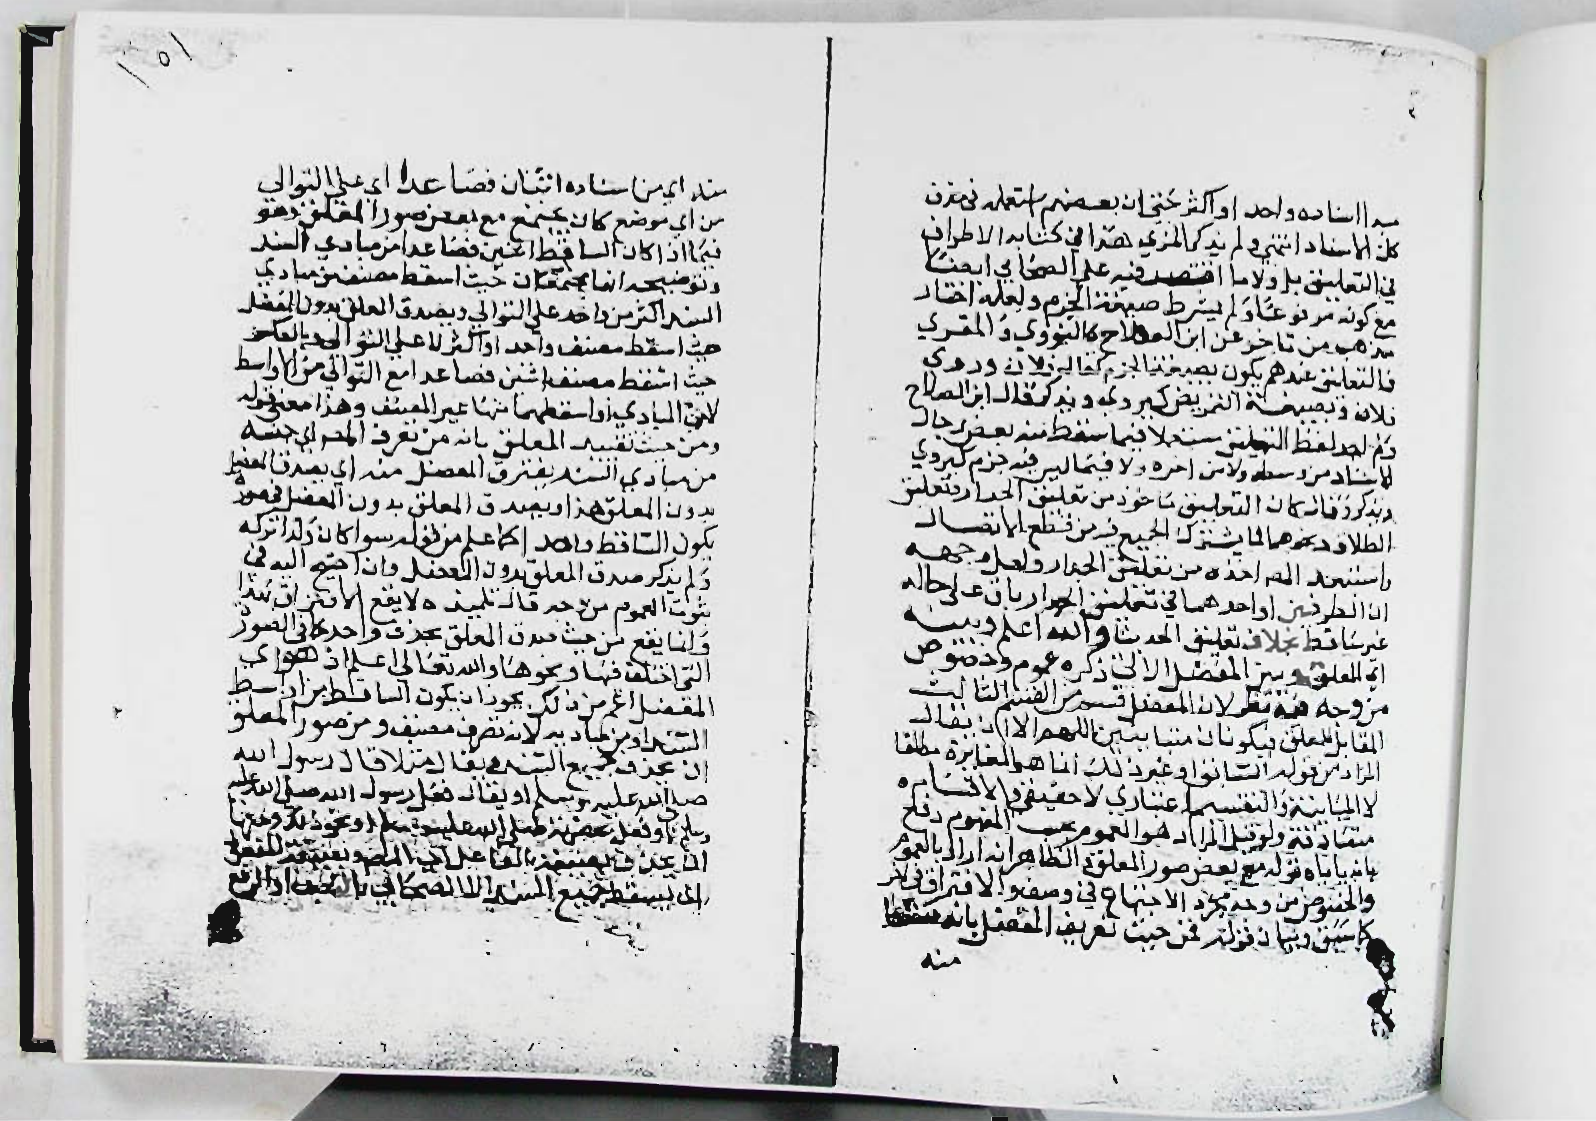 مبدا اسناده واحد او اكثر حتى ان بعضهم استعمله في حذف
كل الاسناد انتهى ولم يذكر المزي هذا في كتابه الاطراف
في التعليق بل ولا ما اقتصر فيه على الصحابي ايضا
مع كونه مرفوعا ولم يشرط صيغة الجزم ولعله اختار
مذهب من تاخر عن ابن الصلاح كالنووي والمقري
فالتعليق عندهم يكون بصيغة الجزم كقال فلان وروى
فلان وبصيغة التمريض كيروى ويذكر قال ابن الصلاح
ولم اجد لفظ التعليق مستعملا فيما سقط منه بعض رجال
الاسناد من وسطه ولا من اخره ولا فيما ليس فيه جزم كيروى
ويذكر فانه كان التعليق ماخوذ من تعليق الجدار وتعليق
الطلاق ونحوهما لما يشترك الجميع فيه من قطع الاتصال
واستبعد المص اخذه من تعليق الجدار ولعل وجهه
ان الطرفين او احدهما في تعليق الجدار باق على حاله
غير ساقط بخلاف تعليق الحديث والله اعلم وبينه
اي المعلق وبين المعضل الاتي ذكره عموم وخصوص
من وجه فيه نظر لان المعضل قسم من القسم الثالث
المقابل للمعلق فيكونان متباينين اللهم الا ان يقال
المراد من قوله الثاني او غير ذلك انما هو المغايرة مطلقا
لا المباينة والتقسيم اعتباري لا حقيقي والاقسام
متصادقة ولو قيل المراد هو العموم بحسب المفهوم دفع
بانه ياباه قوله مع بعض صور المعلق في الظاهر انه اراد بالعموم
والخصوص من وجه مجرد الاجتماع في وصف والافتراق في اخر
كما سبق وبيانه قوله فمن حيث تعريف المعضل بانه سقط
منه
١٥١
سنده اي من اسناده اثنان فصاعدا اي على التوالي
من اي موضع كان يجتمع مع بعض صور المعلق وهو
فيما اذا كان الساقط اثنين فصاعدا من مبادي السند
وتوضيحه انهما يجتمعان حيث اسقط مصنف من مبادي
السند اكثر من واحد على التوالي ويصدق المعلق بدون المعضل
حيث اسقط مصنف واحد او اكثر لا على التوالي وبالعكس
حيث اسقط مصنف اثنين فصاعدا مع التوالي من الاواسط
لا من المبادي او اسقطهما منها غير المصنف وهذا معنى قوله
ومن حيث تقييد المعلق بانه من تصرف المصنف اي حذفه
من مبادي السند يفترق المعضل منه اي يصدق المعضل
بدون المعلق هذا ويصدق المعلق بدون المعضل في صورة
يكون الساقط واحدا كما علم من قوله سوا كان ولذا تركه
ولم يذكر صدق المعلق بدون المعضل وان احتيج اليه في
ثبوت العموم من وجه قال تلميذه لا يقع الافتراق بهذا
وانما يقع من حيث صدق المعلق بحذف واحد كما في الصور
التي اختلف فيها ونحوها والله تعالى اعلم اذ هو اي
المعضل اعم من ذلك يجوز ان يكون الساقط من اوسط
السند او من مباديه لا بتصرف مصنف ومن صور المعلق
ان يحذف جميع السند ويقال مثلا قال رسول الله
صلى الله عليه وسلم او يقال فعل رسول الله صلى الله عليه
وسلم او فعل بحضرته صلى الله عليه وسلم او نحو ذلك ومنها